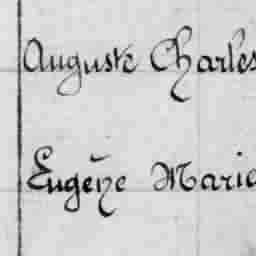 Auguste Charles
Eugène Marie